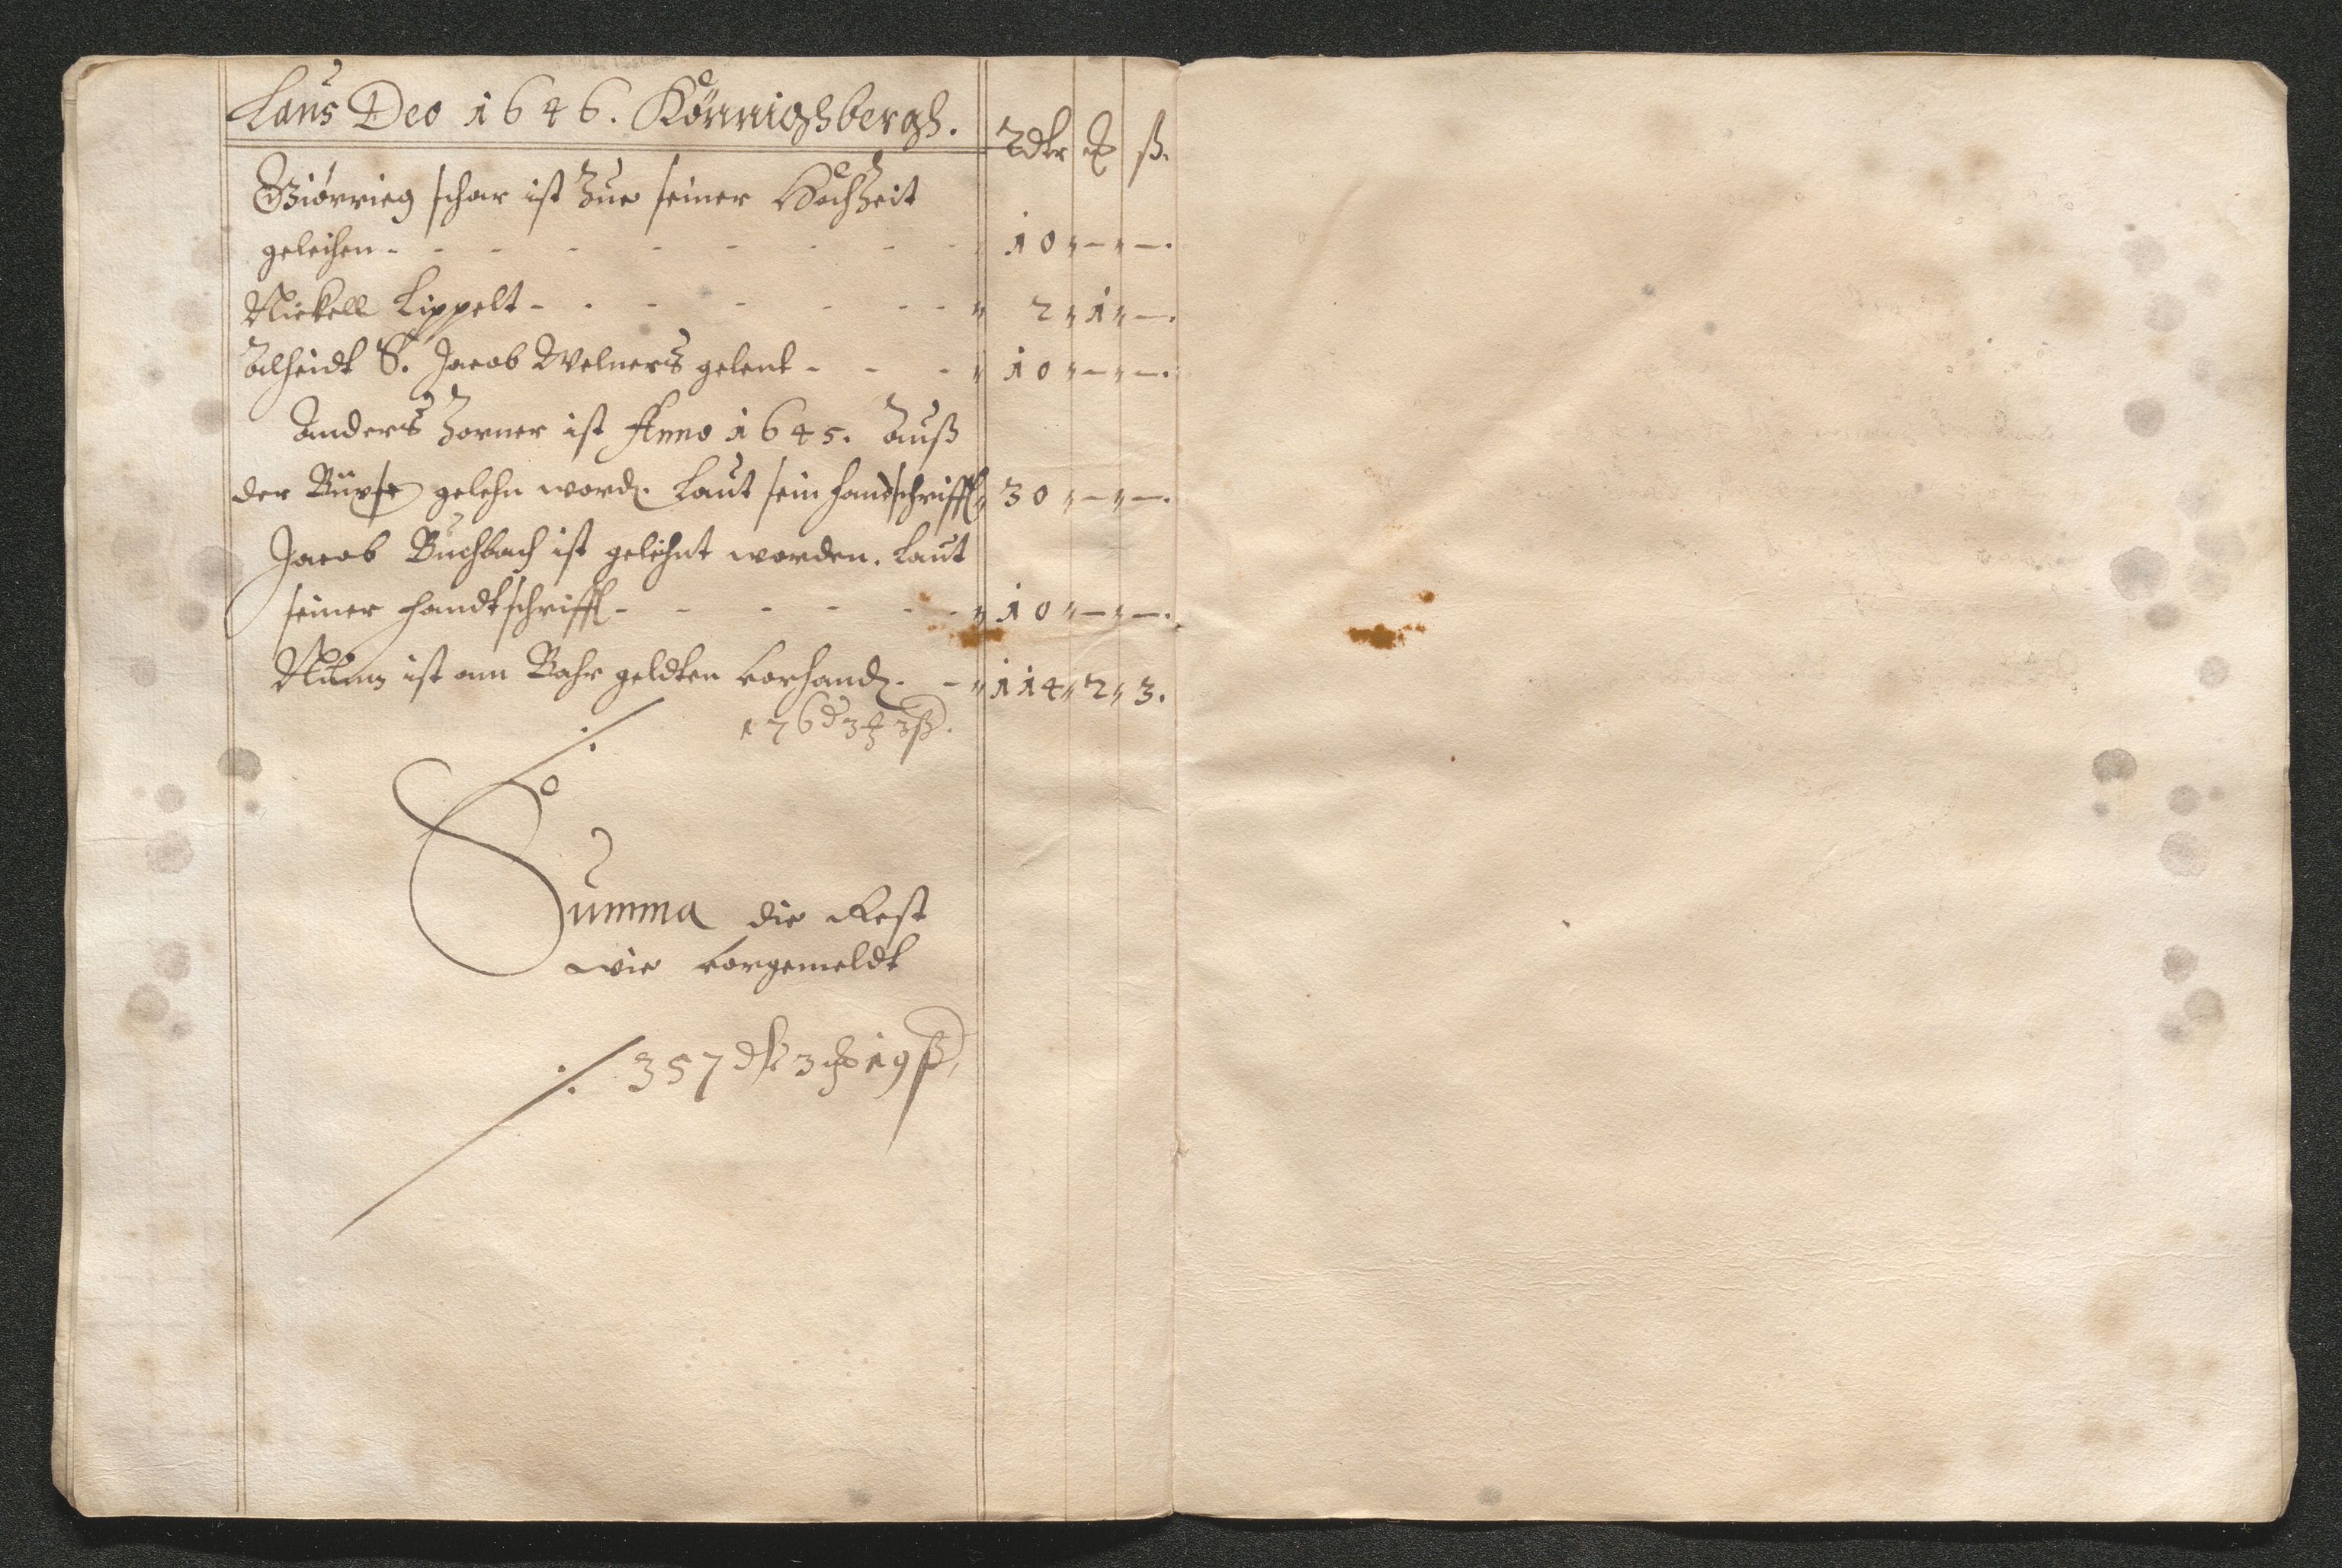 Laus Deo 1646. Könnighsbergh.
Rdlr ß.
Giörrieg schar ist Zue seiner Hochzeit
geleihen - - - - - - - - 10 " — " — .
Nickell Lippelt - - - - - - - " 2 " 1 " — .
Alheidt S. Jacob Welners gelent - - - " 10 " — " — .
Anders Zorner ist Anno 1645. Auß
der Büxse gelehn word. Laut sein handschrifft " 30 " — " — .
Jacob Buchbach ist gelehnt worden. Laut
seiner handtschrifft - - - - - " 10 " — " — .
ist am Bahr geldten vorhand. - " 114 " 2 " 3 .
176 d 3 3 ß.
Summa die Rest
wie vorgemeldt
357 dl 3 19 ß